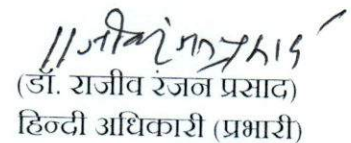 (डॉ. राजीव रंजन प्रसाद)
हिन्दी अधिकारी (प्रभारी)